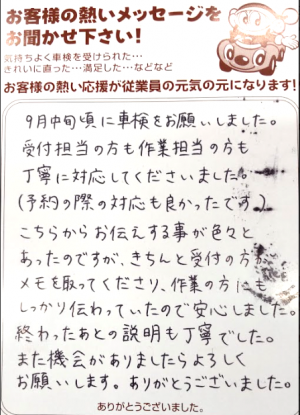 お客様の熱いメッセージを
お聞かせ下さい!
気持ちよく車検を受けられた…
きれいに直った…満足した…などなど
お客様の熱い応援が従業員の元気の元になります!
9月中旬頃に車検をお願いしました。
受付担当の方も作業担当の方も
丁寧に対応してくださいました。
(予約の際の対応も良かったです。)
こちらからお伝えする事が色々と
あったのですが、きちんと受付の方が
メモを取ってくださり、作業の方にも
しっかり伝わっていたので安心しました。
終わったあとの説明も丁寧でした。
また機会がありましたらよろしく
お願いします。ありがとうございました。
ありがとうございました。